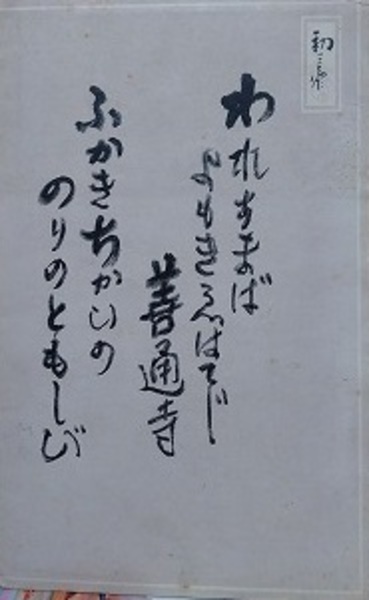 われすまば
よもきゑはてじ
善通寺
ふかきちかいの
のりのともしび